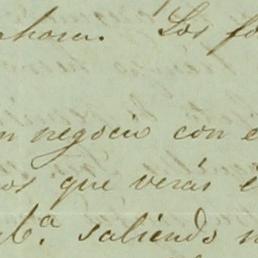 ahora. Los fo
n negocio con e
os que verás e
b.ª saliendo n